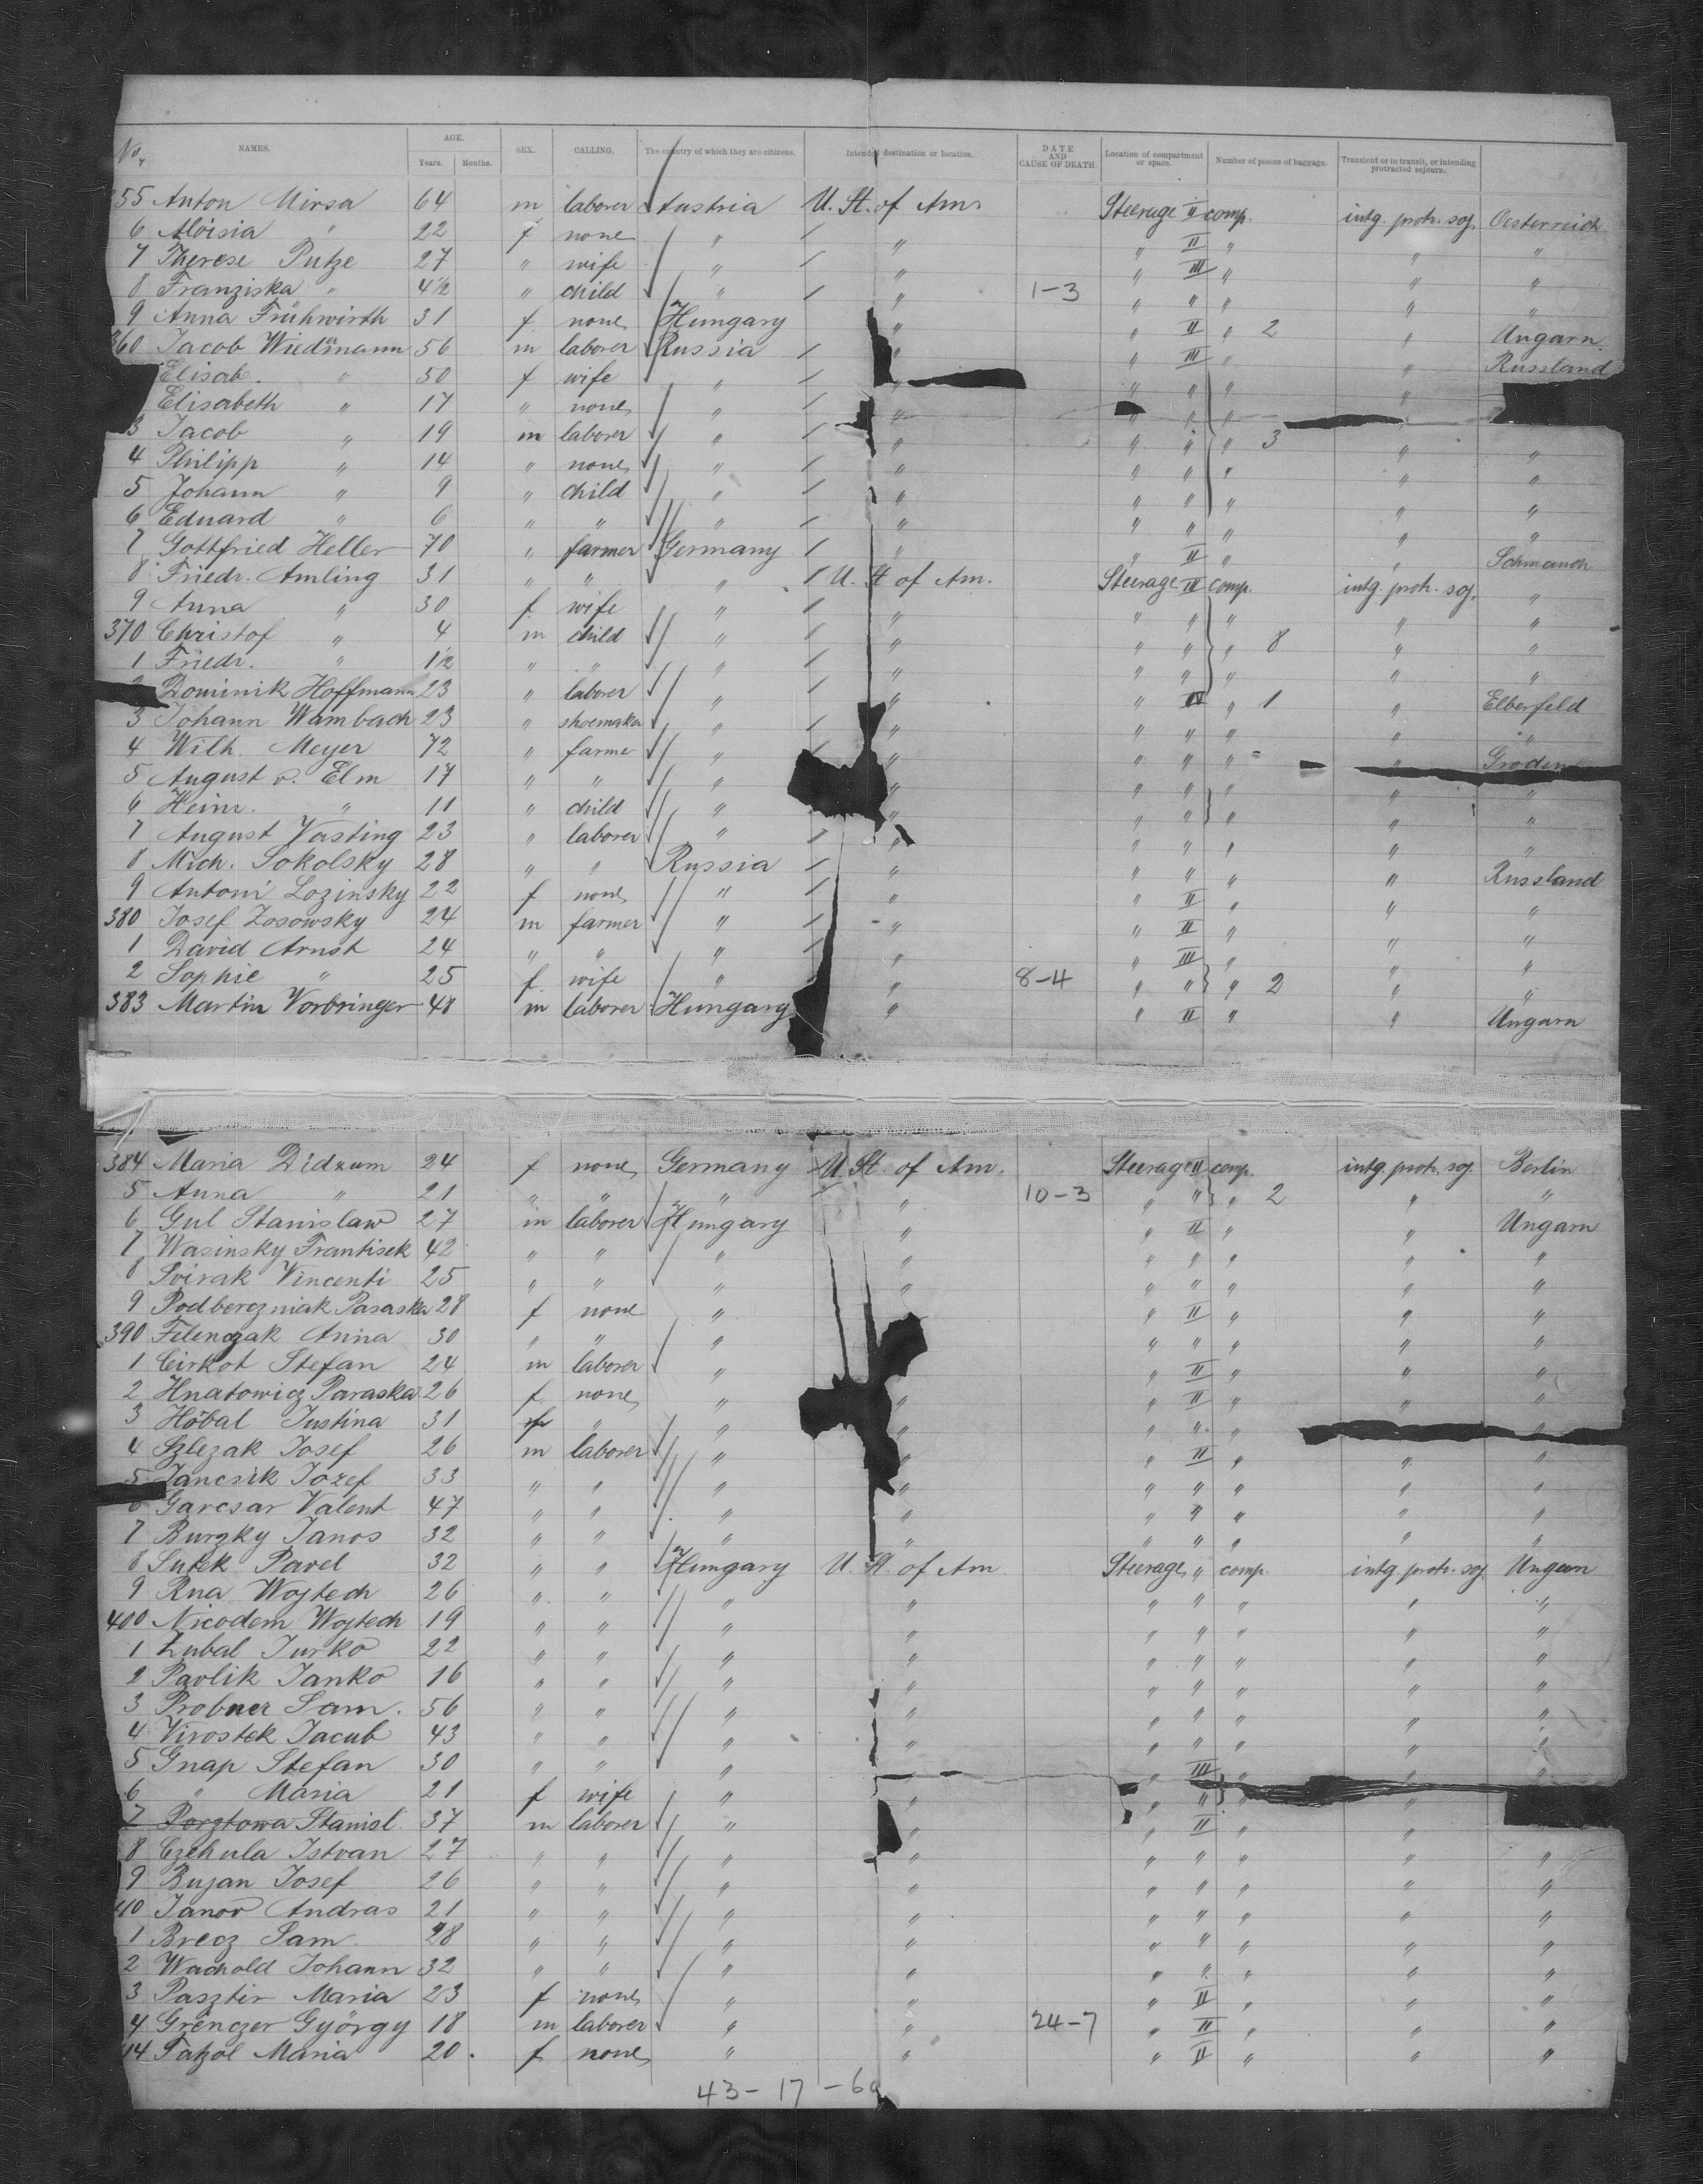 No. NAMES. AGE. Years. Months. SEX. CALLING. The country of which they are citizens. Intended destination or location. DATE AND CAUSE OF DEATH. Location of compartment or space. Number of pieces of baggage. Transient or in transit, or intending protracted sojourn.
355 Anton Mirsa 64 m laborer Austria U. St. of Am. Steerage II comp. intg. protr. soj. Oesterreich
6 Aloisia " 22 f none " " " II " " "
7 Therese Putze 27 " wife " " " III " " "
8 Franziska " 4½ " child " " 1-3 " " " " "
9 Anna Frühwirth 31 f. none Hungary " " II " 2 " Ungarn
360 Jacob Wiedmann 56 m laborer Russia " " III " " Russland
Elisab. " 50 f wife " " " " " "
Elisabeth " 17 " none " " " " "
3 Jacob " 19 m laborer " " " " " 3 " "
4 Philipp " 14 " none " " " " " " "
5 Johann " 9 " child " " " " " " "
6 Eduard " 6 " " " " " " " " "
7 Gottfried Heller 70 " farmer Germany " " II " "
8 Friedr. Amling 31 " " " U. St of Am. Steerage III comp. intg. protr. soj. "
9 Anna " 30 f. wife " " " " " " "
370 Christof " 4 m child " " " " " 8 " "
1 Friedr. " 1½ " " " " " " " " "
Dominik Hoffmann 23 " laborer " " " IV " 1 " Elberfeld
3 Johann Wambach 23 " shoemaker " " " " " " "
4 Wilh. Meyer 72 " farmer " " " " " "
5 August v. Elm 17 " " " " " " " " "
6 Heinr. " 11 " child " " " " " " "
7 August Vasting 23 " laborer " " " " " " "
8 Mich. Sokolsky 28 " " Russia " " " " " Russland
9 Antoni Lozinsky 22 f none " " " II " " "
380 Josef Zosowsky 24 m farmer " " " II " " "
1 David Arnst 24 " " " " " III " " "
2 Sophie " 25 f. wife " " 8-4 " " " 2 " "
383 Martin Vorbringer 48 m laborer Hungary " " II " " Ungarn
384 Maria Didzum 24 f none Germany U. St. of Am. Steerage II comp. intg. protr. soj. Berlin
5 Anna " 21 " " " " 10-3 " " " 2 " "
6 Gul Stanislaw 27 m laborer Hungary " " II " " Ungarn
7 Wasinsky Frantisek 42 " " " " " " " " "
8 Svirak Vincenti 25 " " " " " " " " "
9 Podberczniak Pasaska 28 f none " " " II " " "
390 Felenczak Anna 30 " " " " " " " " "
1 Cirkot Stefan 24 m laborer " " " II " " "
2 Hnatowicz Paraska 26 f none " " " II " " "
3 Hobal Justina 31 f " " " " " " "
4 Szlezak Josef 26 m laborer " " " II " " "
5 Jancsik Jozef 33 " " " " " " " " "
6 Garcsar Valent 47 " " " " " " " " "
7 Burzky Janos 32 " " " " " " " " "
8 Sutek Pavel 32 " " Hungary U. St. of Am. Steerage " comp. intg. protr. soj. Ungarn
9 Rna Wojtech 26 " " " " " " " " "
400 Nicodem Wojtech 19 " " " " " " " " "
1 Lubal Jurko 22 " " " " " " " " "
2 Pavlik Janko 16 " " " " " " " " "
3 Probner Sam. 56 " " " " " " " " "
4 Virostek Jacub 43 " " " " " " " " "
5 Gnap Stefan 30 " " " " " III " " "
6 " Maria 21 f wife " " " " " "
7 Porztowa Stanisl. 37 m laborer " " " II " "
8 Czehula Istvan 27 " " " " " " " " "
9 Bujan Josef 26 " " " " " " " " "
410 Janov Andras 21 " " " " " " " " "
1 Brecz Sam. 28 " " " " " " " " "
2 Wachold Johann 32 " " " " " " " " "
3 Pasztir Maria 23 f none " " " II " " "
4 Grenczer György 18 m laborer " " 24-7 " II " " "
14 Tatzol Maria 20. f none " " " II " " "
43-17-60